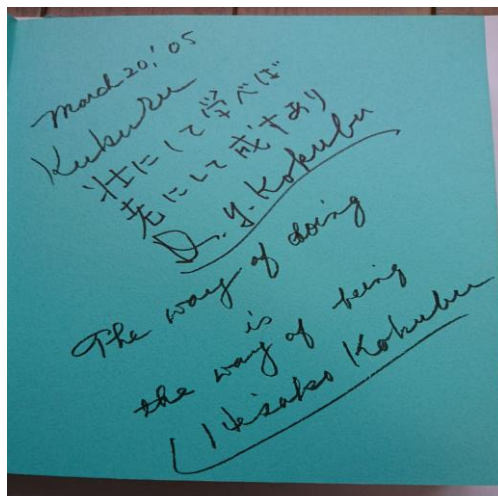 March 20, '05
Kukuru
壮にして学べば
老にして成すあり
Dr. Y. Kokubu
The way of doing
is
the way of being
Hisako Kokubu